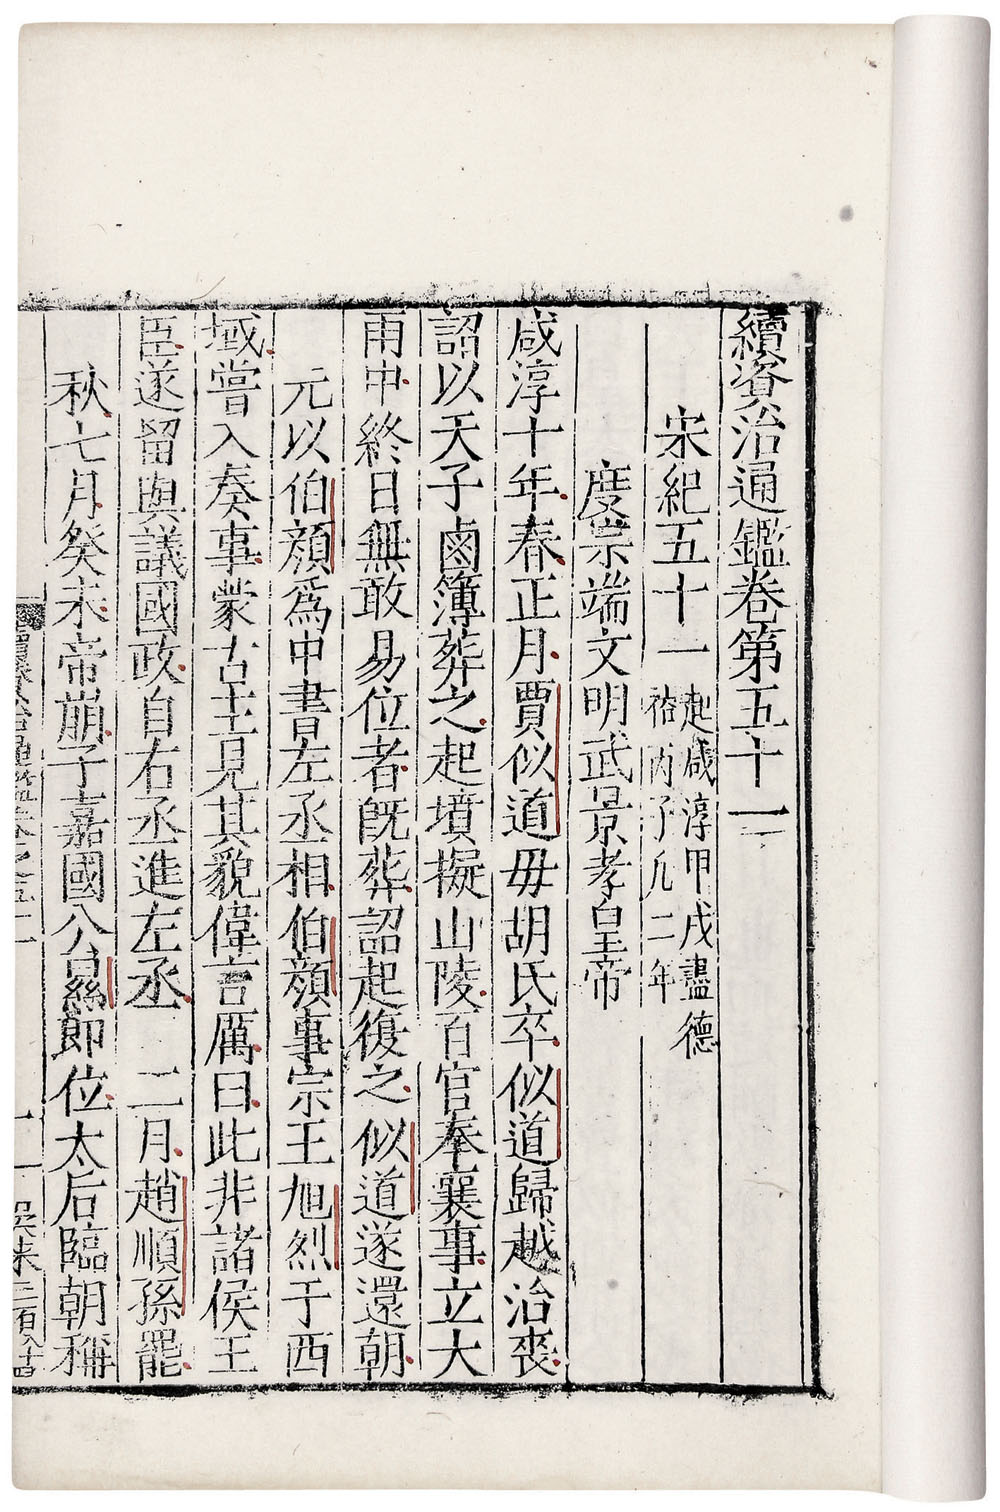 續資治通鑑卷第五十一
宋紀五十一 起咸淳甲戌盡德
祐丙子凡二年
度宗端文明武景孝皇帝
咸淳十年春正月賈似道毋胡氏卒似道歸越治喪
詔以天子鹵簿葬之起墳擬山陵百官奉襄事立大
雨中終日無敢易位者旣葬詔起復之似道遂還朝
元以伯顔爲中書左丞相伯顔事宗王旭烈于西
域嘗入奏事蒙古主見其貌偉言厲曰此非諸侯王
臣遂留與議國政自右丞進左丞 二月趙順孫罷
秋七月癸未帝崩子嘉國公㬎即位太后臨朝稱